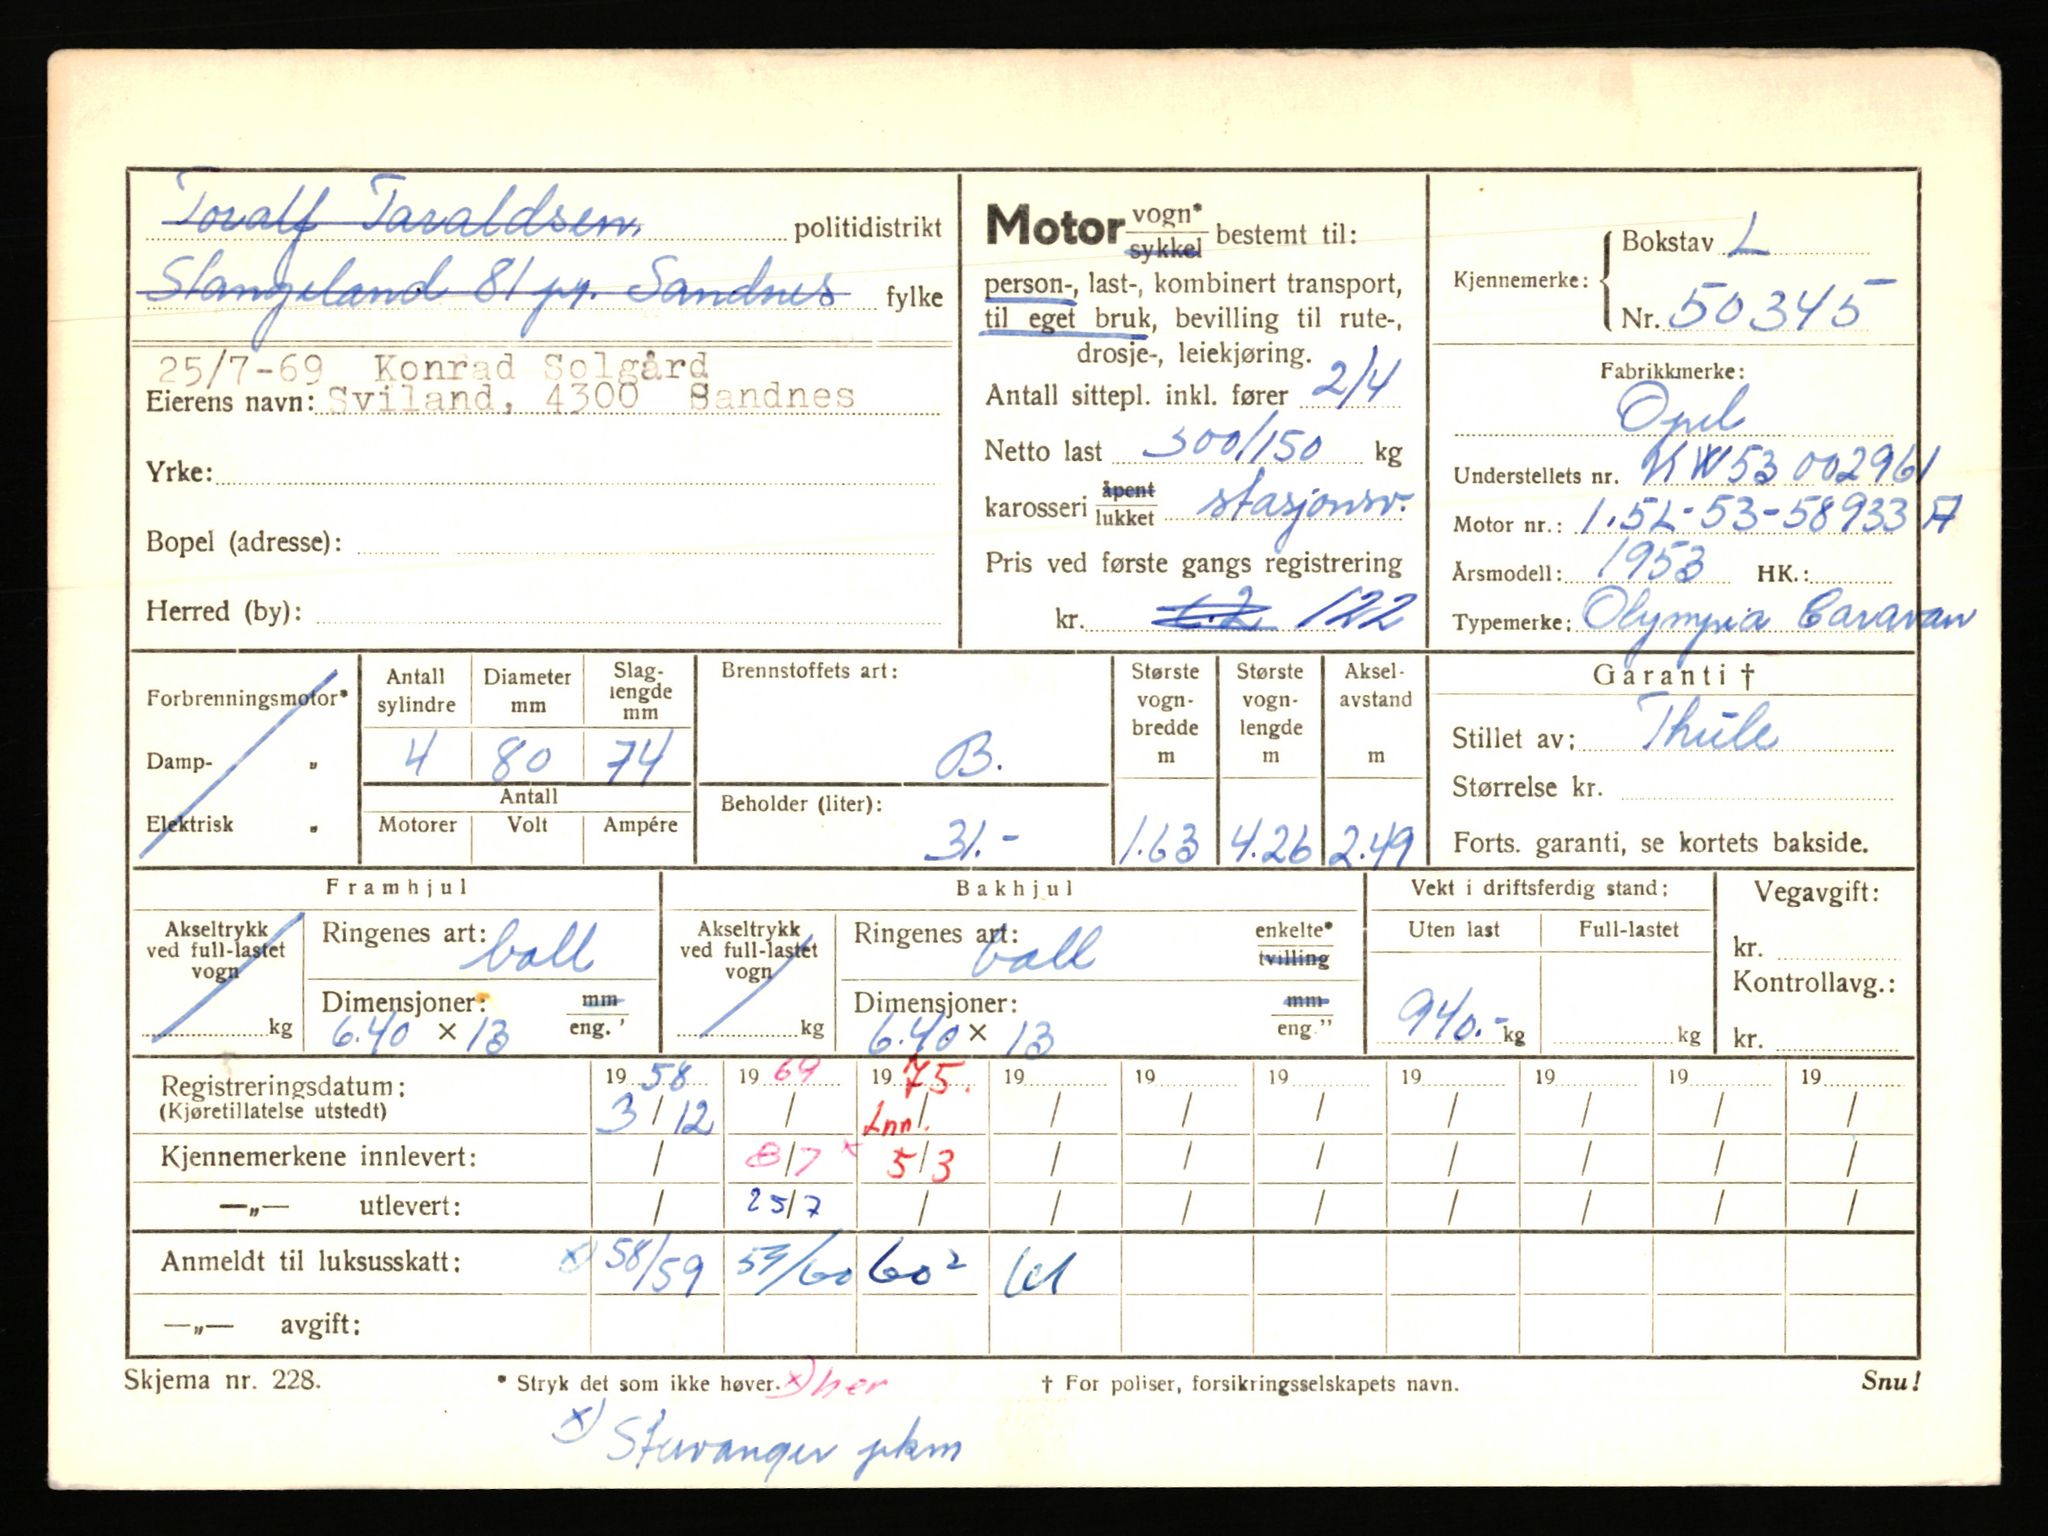 Toralf Taraldsen, politidistrikt
Stangeland 81 pr. Sandnes fylke
25/7-69 Konrad Solgård
Eierens navn: Sviland, 4300 Sandnes
Yrke:
Bopel (adresse):
Herred (by):
Motor vogn* sykkel bestemt til:
person-, last-, kombinert transport,
til eget bruk, bevilling til rute-,
drosje-, leiekjøring.
Antall sittepl. inkl. fører 2/4
Netto last 300/150 kg
karosseri åpent lukket stasjonsv.
Pris ved første gangs registrering
kr. 122
Kjennemerke: Bokstav L
Nr. 50345
Fabrikkmerke:
Opel
Understellets nr. KW53 002961
Motor nr.: 1.5L-53-58933 A
Årsmodell: 1953 HK.:
Typemerke: Olympia Caravan
Forbrenningsmotor*
Damp- „
Elektrisk „
Antall sylindre 4
Diameter mm 80
Slaglengde mm 74
Antall
Motorer Volt Ampére
Brennstoffets art: B.
Beholder (liter): 31.-
Største vognbredde m 1.63
Største vognlengde m 4.26
Akselavstand m 2.49
Garanti †
Stillet av: Thule
Størrelse kr.
Forts. garanti, se kortets bakside.
Framhjul
Akseltrykk ved full-lastet vogn kg
Ringenes art: ball
Dimensjoner: mm eng.'
6.40 × 13
Bakhjul
Akseltrykk ved full-lastet vogn kg
Ringenes art: ball enkelte* tvilling
Dimensjoner: mm eng."
6.40 × 13
Vekt i driftsferdig stand:
Uten last Full-lastet
940.- kg kg
Vegavgift:
kr.
Kontrollavg.:
kr.
Registreringsdatum: 19 58 19 69 19 75. 19 19 19 19 19 19 19
(Kjøretillatelse utstedt) 3/12 / Inn. / / / / / / / /
Kjennemerkene innlevert: / 8/7 x 5/3 / / / / / / /
—„— utlevert: / 25/7 / / / / / / / /
Anmeldt til luksusskatt: x) 58/59 59/60 60² 61
—„— avgift:
Skjema nr. 228. * Stryk det som ikke høver. x) her † For poliser, forsikringsselskapets navn. Snu!
x) Stavanger pkm